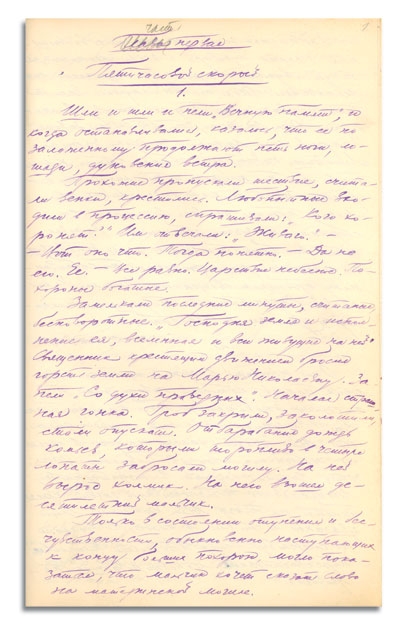 1
часть
первая
Пятичасовой скорый
1.
Шли и шли и пели „Вечную память", и
когда останавливались, казалось, что ее по
заложенному продолжают петь ноги, ло-
шади, дуновение ветра.
Прохожие пропускали шествие, счита-
ли венки, крестились. Любопытные вхо-
дили в процессию, спрашивали: „Кого хо-
ронят?" Им отвечали: „Живаго". –
– Вот оно что. Тогда понятно. – Да не
его. Ее. – Все равно. Царствие небесное. По-
хороны богатые.
Замелькали последние минуты, считанные,
бесповоротные. „Господня земля и испол-
нение ея, вселенная и вси живущие на ней".
Священник крестящим движением бросил
горсть земли на Марью Николаевну. За-
пели „Со духи праведных". Началась страш-
ная гонка. Гроб закрыли, заколотили,
стали опускать. Отбарабанил дождь
комьев, которыми торопливо в четыре
лопаты забросали могилу. На ней
вырос холмик. На него взошел де-
сятилетний мальчик.
Только в состоянии отупения и бес-
чувственности, обыкновенно наступающих
к концу больших похорон, могло пока-
заться, что мальчик хочет сказать слово
на материнской могиле.